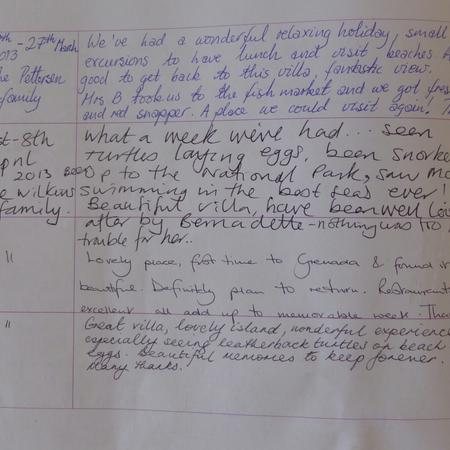 - 27th March
2013
Pettersen
family
We've had a wonderful relaxing holiday, small
excursions to have lunch and visit beaches.
good to get back to this villa, fantastic view.
Mrs B took us to the fish market and we got
and red snapper. A place we could visit again!
- 8th
April
2013
Wilkins
family.
what a week we've had... seen
turtles laying eggs, been
up to the National Park, saw
swimming in the best seas ever!
Beautiful villa, have been well
after by Bernadette - nothing was too
trouble for her..
"
Lovely place, first time to Grenada & found
beautiful. Definitly plan to return.
excellent all add up to memorable week.
"
Great villa, lovely island, wonderful
especially seeing leatherback turtles on beach
eggs. Beautiful memories to keep forever.
Many thanks.